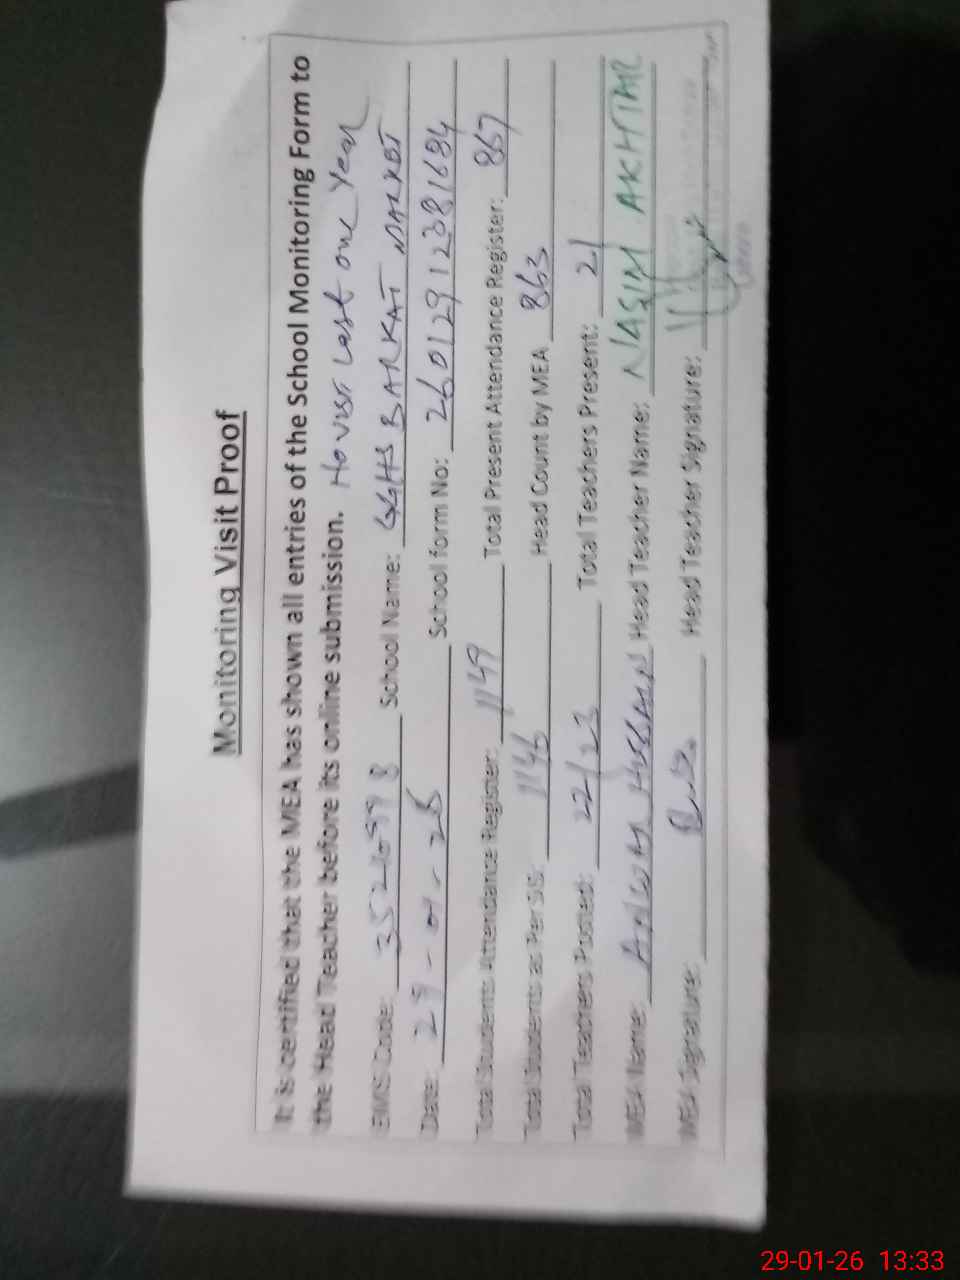 Monitoring Visit Proof
It is certified that the MEA has shown all entries of the School Monitoring Form to
the Head Teacher before its online submission. last one Year
EMIS Code: School Name: GGHS BARKAT MARKET
Date: 29-01-26 School form No: 26012912381684
Total Students Attendance Register: 1149 Total Present Attendance Register: 867
Total Students as Per SIS: 1146 Head Count by MEA 863
Total Teachers Posted: 22/23 Total Teachers Present: 21
MEA Name: HUSSAIN Head Teacher Name: NASIM AKHTAR
MEA Signature: Head Teacher Signature:
29-01-26 13:33